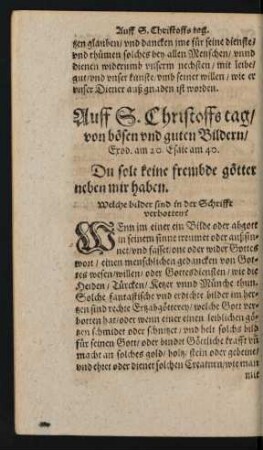 Auff S. Christoffs tag.
gen glauben/ vnd dancken jme für seine dienste/
vnd rhümen solches bey allen Menschen/ vnnd
dienen widerumb vnserm nechsten/ mit leibe/
gut/ vnd vnser kunste/ vmb seinet willen/ wie er
vnser Diener auß gnaden ist worden.
Auff S. Christoffs tag/
von bösen vnd guten Bildern/
Exod. am 20. Esaie am 40.
Du solt keine frembde götter
neben mir haben.
Welche bilder sind in der Schrifft
verbotten?
WEnn im einer ein Bilde oder abgott
in seinem sinne treumet oder außsin-
net/ vnd fasset/ one oder wider Gottes
wort/ einen menschlichen gedancken von Got-
tes wesen/ willen/ oder Gottesdiensten/ wie die
Heiden/ Türcken/ Ketzer vnnd Münche thun.
Solche fantastische vnd erdichte bilder im her-
tzen sind rechte Ertzabgötterey/ welche Gott ver-
botten hat/ oder wenn einer einen leiblichen gö-
tzen schmidet oder schnitzet/ vnd helt solchs bild
für seinen Gott/ oder bindet Göttliche krafft vñ
macht an solches gold/ holtz/ stein oder gebeine/
vnd ehret oder dienet solchen Creaturn/ wie man
mit